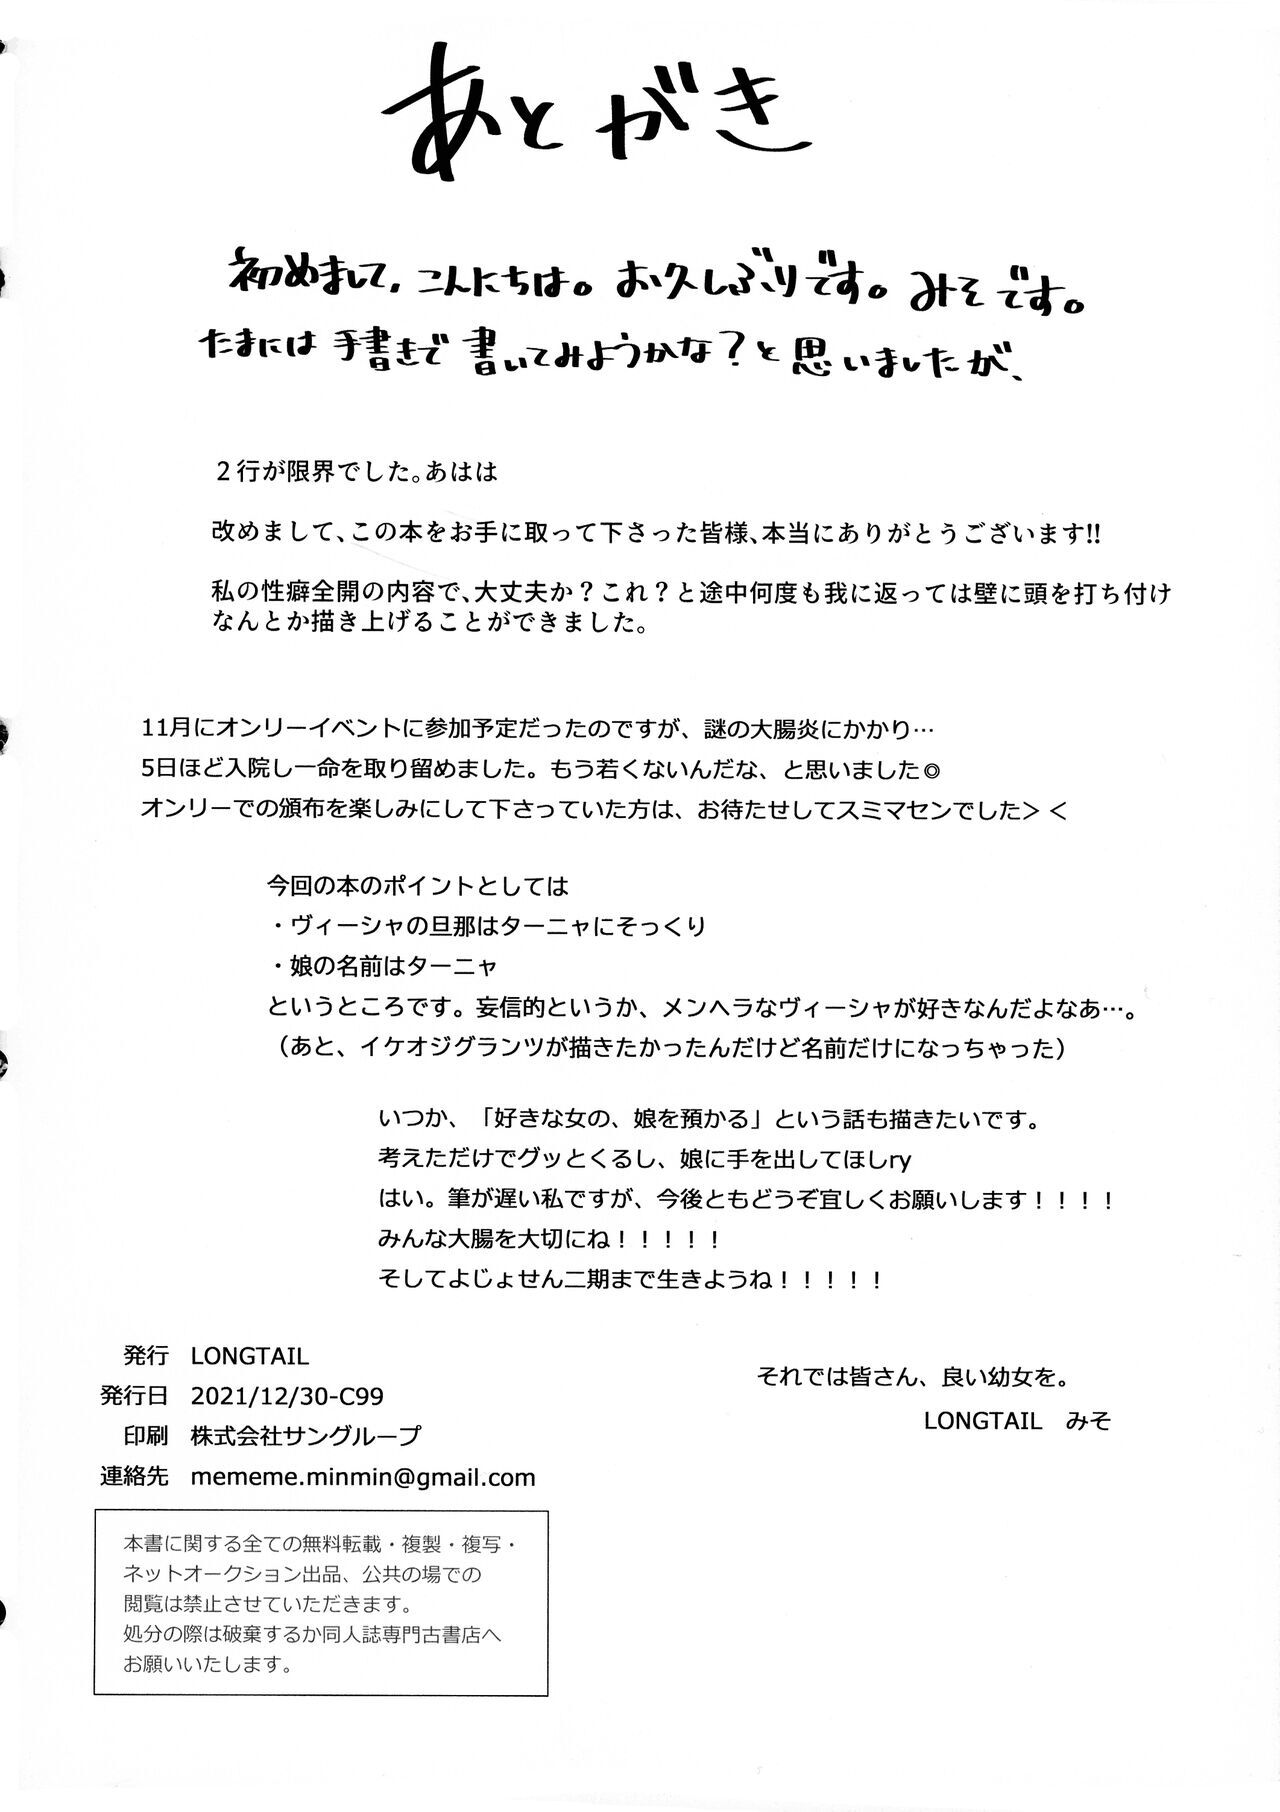 あとがき
初めまして、こんにちは。お久しぶりです。みそです。
たまには手書きで書いてみようかな？と思いましたが、
２行が限界でした。あはは
改めまして、この本をお手に取って下さった皆様、本当にありがとうございます!!
私の性癖全開の内容で、大丈夫か？これ？と途中何度も我に返っては壁に頭を打ち付け
なんとか描き上げることができました。
11月にオンリーイベントに参加予定だったのですが、謎の大腸炎にかかり…
5日ほど入院し一命を取り留めました。もう若くないんだな、と思いました◎
オンリーでの頒布を楽しみにして下さっていた方は、お待たせしてスミマセンでした＞＜
今回の本のポイントとしては
・ヴィーシャの旦那はターニャにそっくり
・娘の名前はターニャ
というところです。妄信的というか、メンヘラなヴィーシャが好きなんだよなあ…。
（あと、イケオジグランツが描きたかったんだけど名前だけになっちゃった）
いつか、「好きな女の、娘を預かる」という話も描きたいです。
考えただけでグッとくるし、娘に手を出してほしry
はい。筆が遅い私ですが、今後ともどうぞ宜しくお願いします！！！！
みんな大腸を大切にね！！！！！
そしてよじょせん二期まで生きようね！！！！！
それでは皆さん、良い幼女を。
LONGTAIL　みそ
発行　LONGTAIL
発行日　2021/12/30-C99
印刷　株式会社サングループ
連絡先　mememe.minmin@gmail.com
本書に関する全ての無料転載・複製・複写・
ネットオークション出品、公共の場での
閲覧は禁止させていただきます。
処分の際は破棄するか同人誌専門古書店へ
お願いいたします。